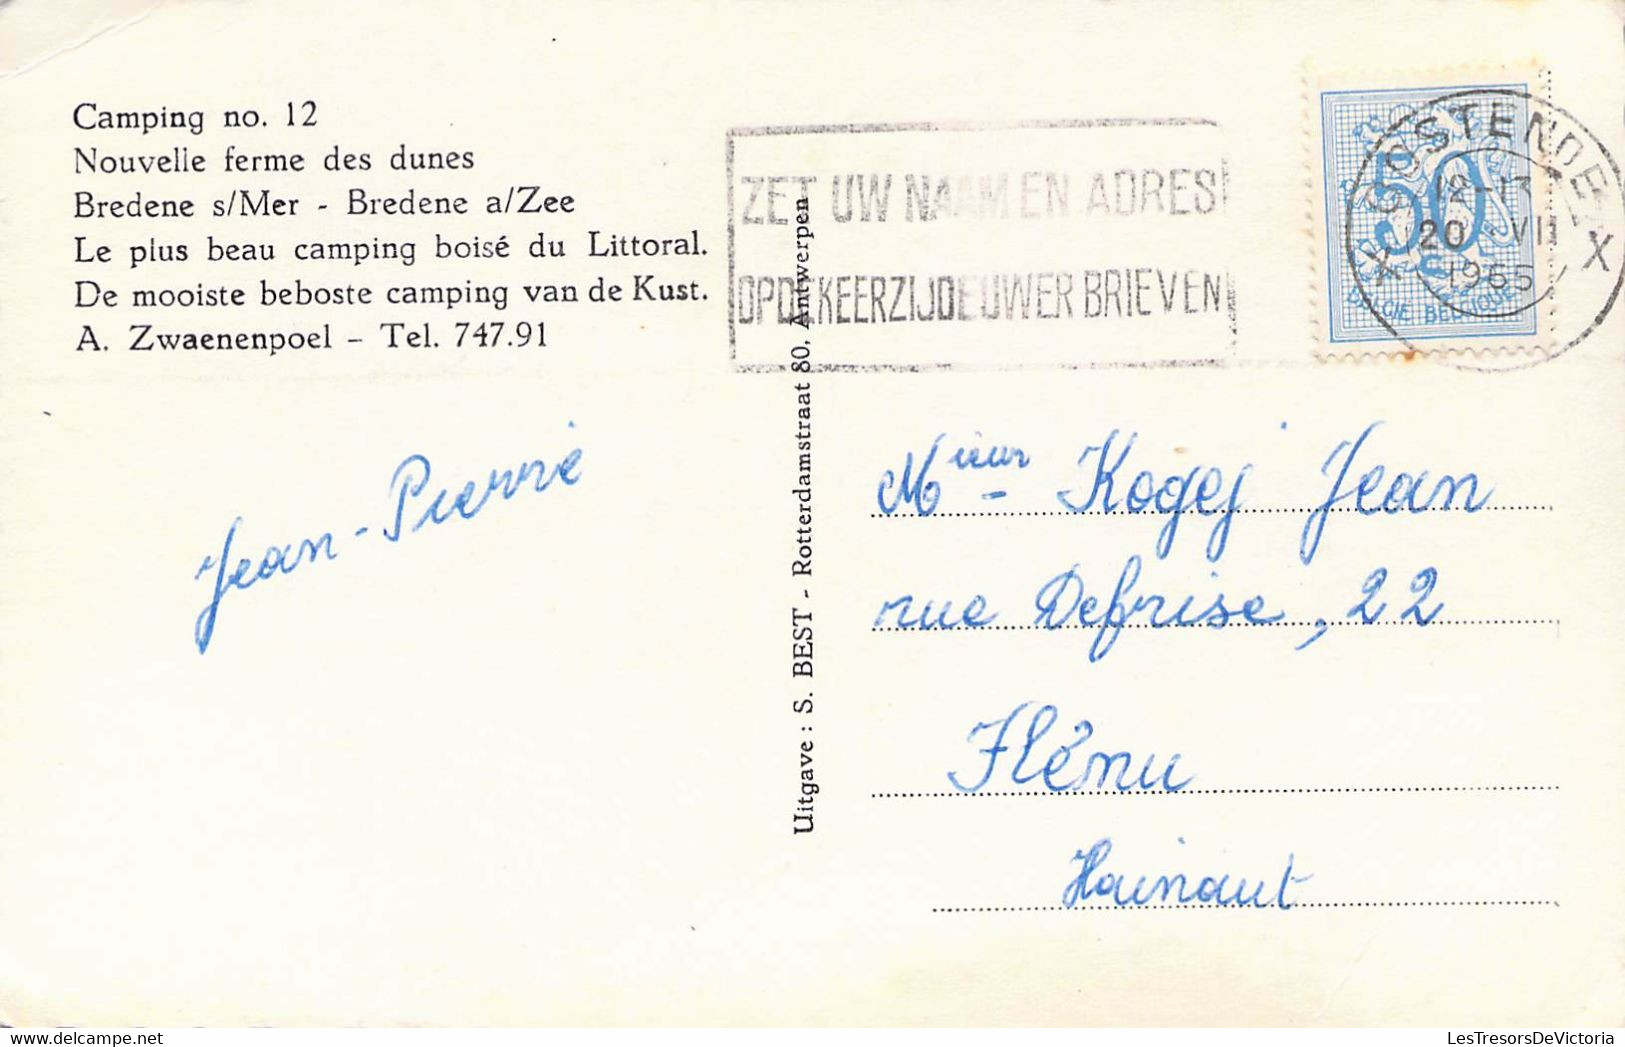 Camping no. 12
Nouvelle ferme des dunes
Bredene s/Mer - Bredene a/Zee
Le plus beau camping boisé du Littoral.
De mooiste beboste camping van de Kust.
A. Zwaenenpoel - Tel. 747.91
ZET UW NAAM EN ADRES
OP DE KEERZIJDE UWER BRIEVEN
OOSTENDE
12-13
20 VII
1965
X X
50
BELGIE BELGIQUE
Uitgave : S. BEST - Rotterdamstraat 80, Antwerpen
Jean-Pierre
Mieur Kogej Jean
rue Defrise, 22
Flénu
Hainaut
LesTresorsDeVictoria